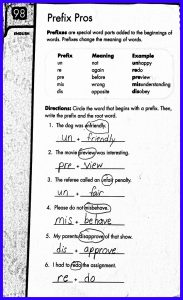 98
ENGLISH
Prefix Pros
Prefixes are special word parts added to the beginnings of
words. Prefixes change the meaning of words.
Prefix Meaning Example
un not unhappy
re again redo
pre before preview
mis wrong misunderstanding
dis opposite disobey
Directions: Circle the word that begins with a prefix. Then,
write the prefix and the root word.
1. The dog was unfriendly.
un + friendly
2. The movie preview was interesting.
pre + view
3. The referee called an unfair penalty.
un + fair
4. Please do not misbehave.
mis + behave
5. My parents disapprove of that show.
dis + approve
6. I had to redo the assignment.
re + do